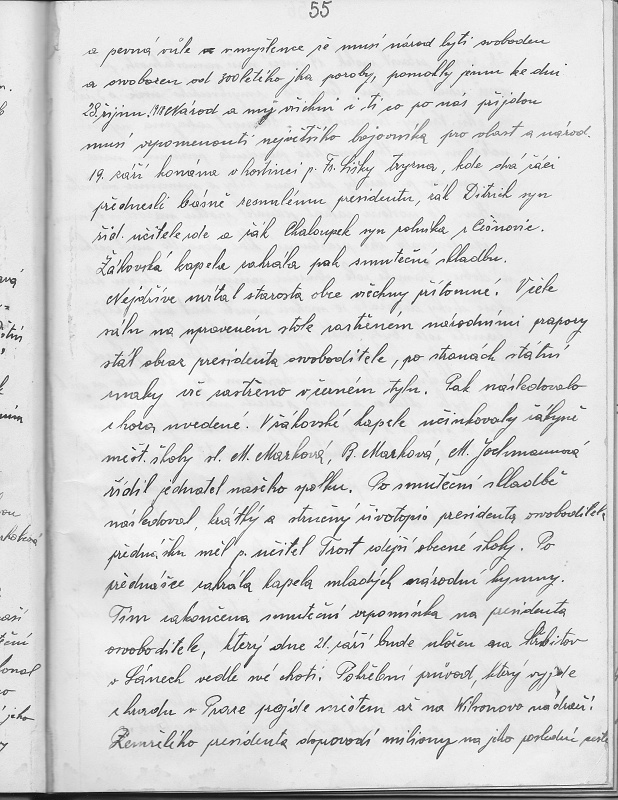 55
a pevná vůle v myšlence že musí národ býti svoboden
a osvobozen od 300letého jha poroby, pomohly jemu ke dni
28. října. Národ a my všichni i ti co po nás přijdou
musí vzpomenouti největšího bojovníka pro vlast a národ.
19. září konána v hostinci p. Fr. Šišky tryzna, kde dvá žáci
přednesli básně zesnulému presidentu, žák Ditrich syn
říd. učitele zde a žák Chaloupek syn rolníka z Čiónovic.
Žákovská kapela zahrála pak smuteční skladbu.
Nejdříve uvítal starosta obce všechny přítomné. V čele
sálu na upraveném stole zastřeném národními prapory
stál obraz presidenta osvoboditele, po stranách státní
znaky vše zastřeno v černém tylu. Pak následovalo
shora uvedené. V žákovské kapele učinkovaly žákyně
měšť. školy sl. M. Marková, B. Marková, M. Jochmanová
řídil jednatel našeho spolku. Po smuteční skladbě
následoval, krátký a stručný životopis presidenta osvoboditele
přednášku měl p. učitel Trost zdejší obecné školy. Po
přednášce zahrála kapela mladých národní hymny.
Tím zakončena smuteční vzpomínka na presidenta
osvoboditele, který dne 21. září bude uložen na hřbitov
v Lánech vedle své choti. Pohřební průvod, který vyjde
z hradu v Praze projde městem až na Wilsonovo nádraží.
Zemřelého presidenta doprovodí miliony na jeho poslední cestě